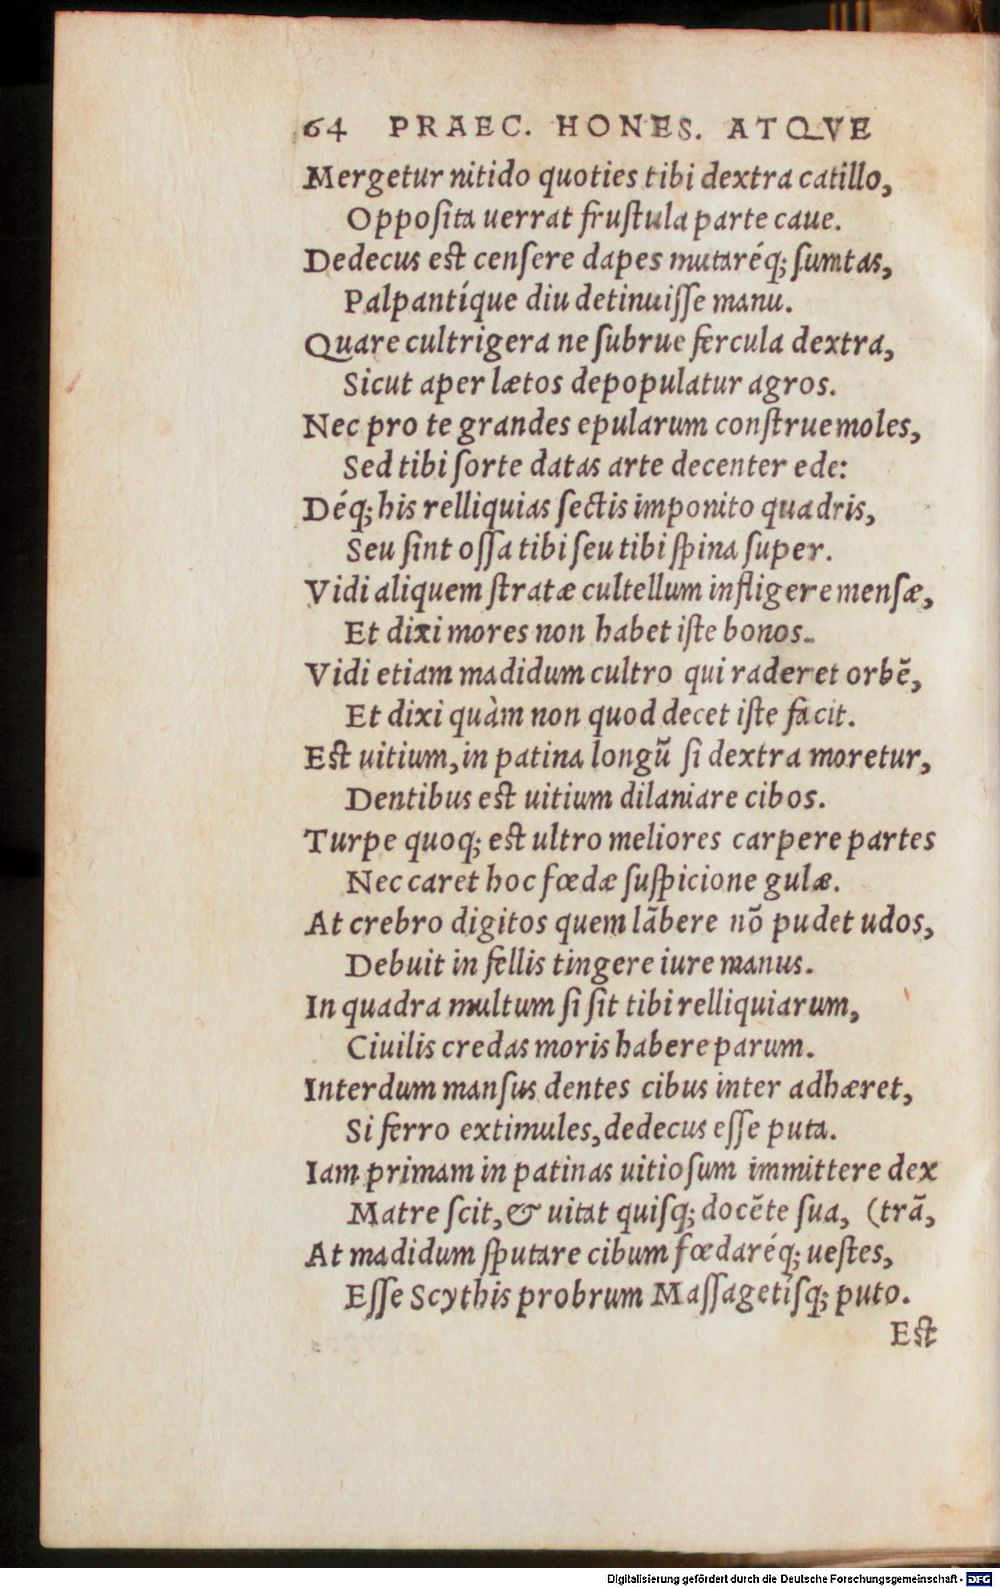 64 PRAEC. HONES. ATQVE
Mergetur nitido quoties tibi dextra catillo,
Oppoſita uerrat fruſtula parte caue.
Dedecus eſt cenſere dapes mutaréq; ſumtas,
Palpantíque diu detinuiſſe manu.
Quare cultrigera ne ſubrue fercula dextra,
Sicut aper lætos depopulatur agros.
Nec pro te grandes epularum conſtrue moles,
Sed tibi ſorte datas arte decenter ede:
Déq; his relliquias ſectis imponito quadris,
Seu ſint oſſa tibi ſeu tibi ſpina ſuper.
Vidi aliquem ſtratæ cultellum infligere menſæ,
Et dixi mores non habet iſte bonos.
Vidi etiam madidum cultro qui raderet orbẽ,
Et dixi quàm non quod decet iſte facit.
Eſt uitium, in patina longũ ſi dextra moretur,
Dentibus eſt uitium dilaniare cibos.
Turpe quoq; eſt ultro meliores carpere partes
Nec caret hoc fœdæ ſuſpicione gulæ.
At crebro digitos quem lãbere nõ pudet udos,
Debuit in fellis tingere iure manus.
In quadra multum ſi ſit tibi relliquiarum,
Ciuilis credas moris habere parum.
Interdum manſus dentes cibus inter adhæret,
Si ferro extimules, dedecus eſſe puta.
Iam primam in patinas uitioſum immittere dex
Matre ſcit, & uitat quiſq; docẽte ſua, (trã,
At madidum ſputare cibum fœdaréq; ueſtes,
Eſſe Scythis probrum Maſſagetíſq; puto.
Eſt
Digitalisierung gefördert durch die Deutsche Forschungsgemeinschaft - DFG